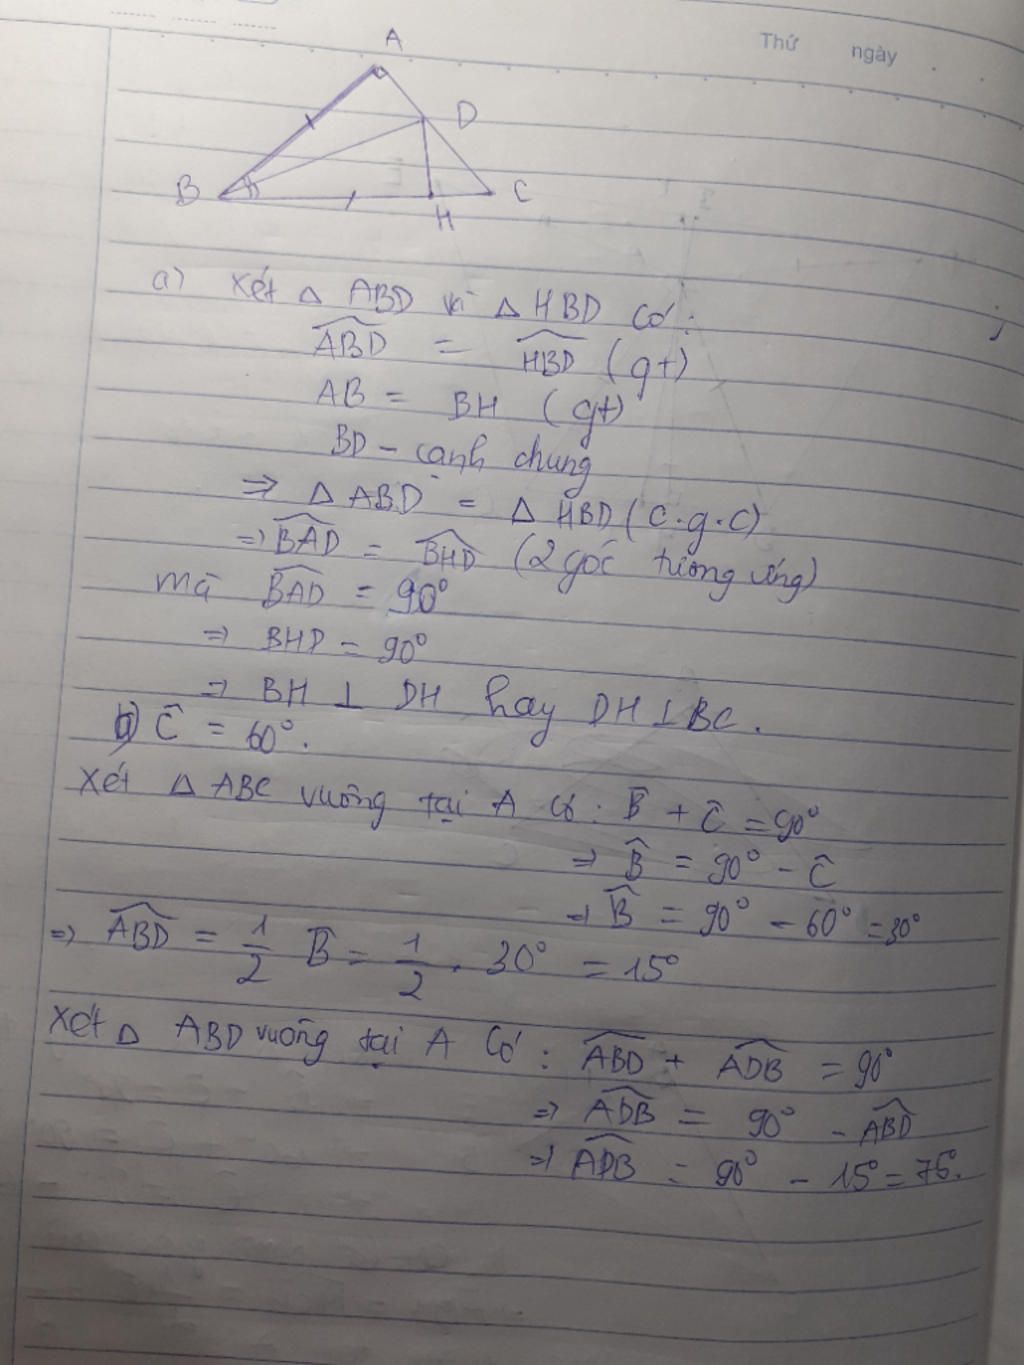 Thứ ngày
A
D
B
C
H
a) Xét △ ABD và △ HBD có:
ABD = HBD (gt)
AB = BH (gt)
BD - cạnh chung
=> △ ABD = △ HBD (c.g.c)
=> BAD = BHD (2 góc tương ứng)
mà BAD = 90°
=> BHD = 90°
=> BH ⊥ DH hay DH ⊥ BC.
b) Ĉ = 60°.
Xét △ ABC vuông tại A có: B̂ + Ĉ = 90°
=> B̂ = 90° - Ĉ
=> B̂ = 90° - 60° = 30°
=> ABD = 1/2 B̂ = 1/2 . 30° = 15°
Xét △ ABD vuông tại A có: ABD + ADB = 90°
=> ADB = 90° - ABD
=> ADB = 90° - 15° = 75°.